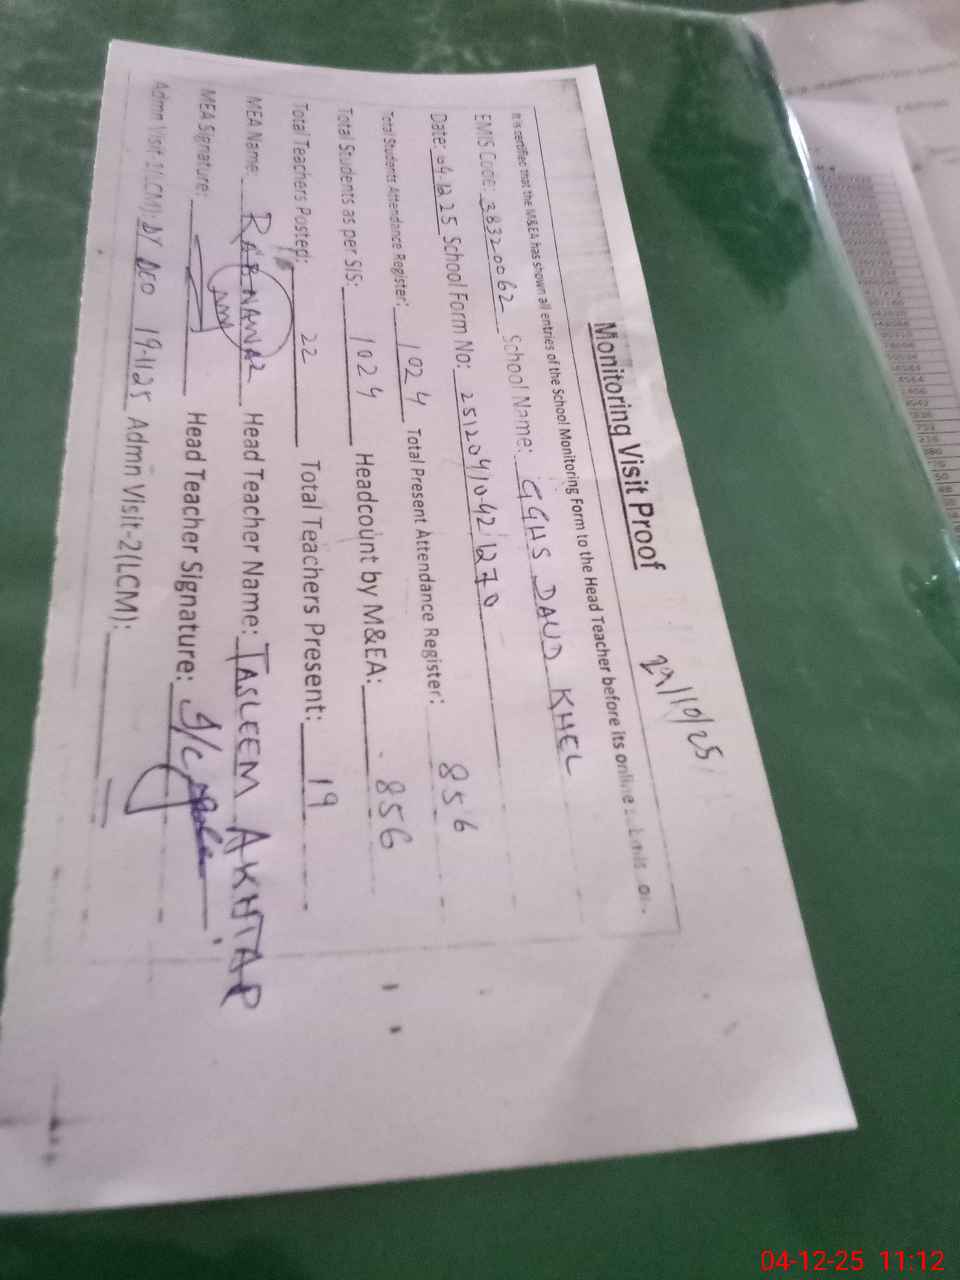 Monitoring Visit Proof
29/10/25
It is certified that the M&EA has shown all entries of the School Monitoring Form to the Head Teacher before its online
EMIS Code: 38320062 School Name: GGHS DAUD KHEL
Date: 041225 School Form No: 25120410421270
Total Students Attendance Register: 1024 Total Present Attendance Register: 856
Total Students as per SIS: 1024 Headcount by M&EA: 856
Total Teachers Posted: 22 Total Teachers Present: 19
MEA Name: RABNAWAZ Head Teacher Name: TASLEEM AKHTAR
MEA Signature: Head Teacher Signature: I/C
Admn Visit-1(LCM): DY DEO 19-11-25 Admn Visit-2(LCM):
04-12-25 11:12